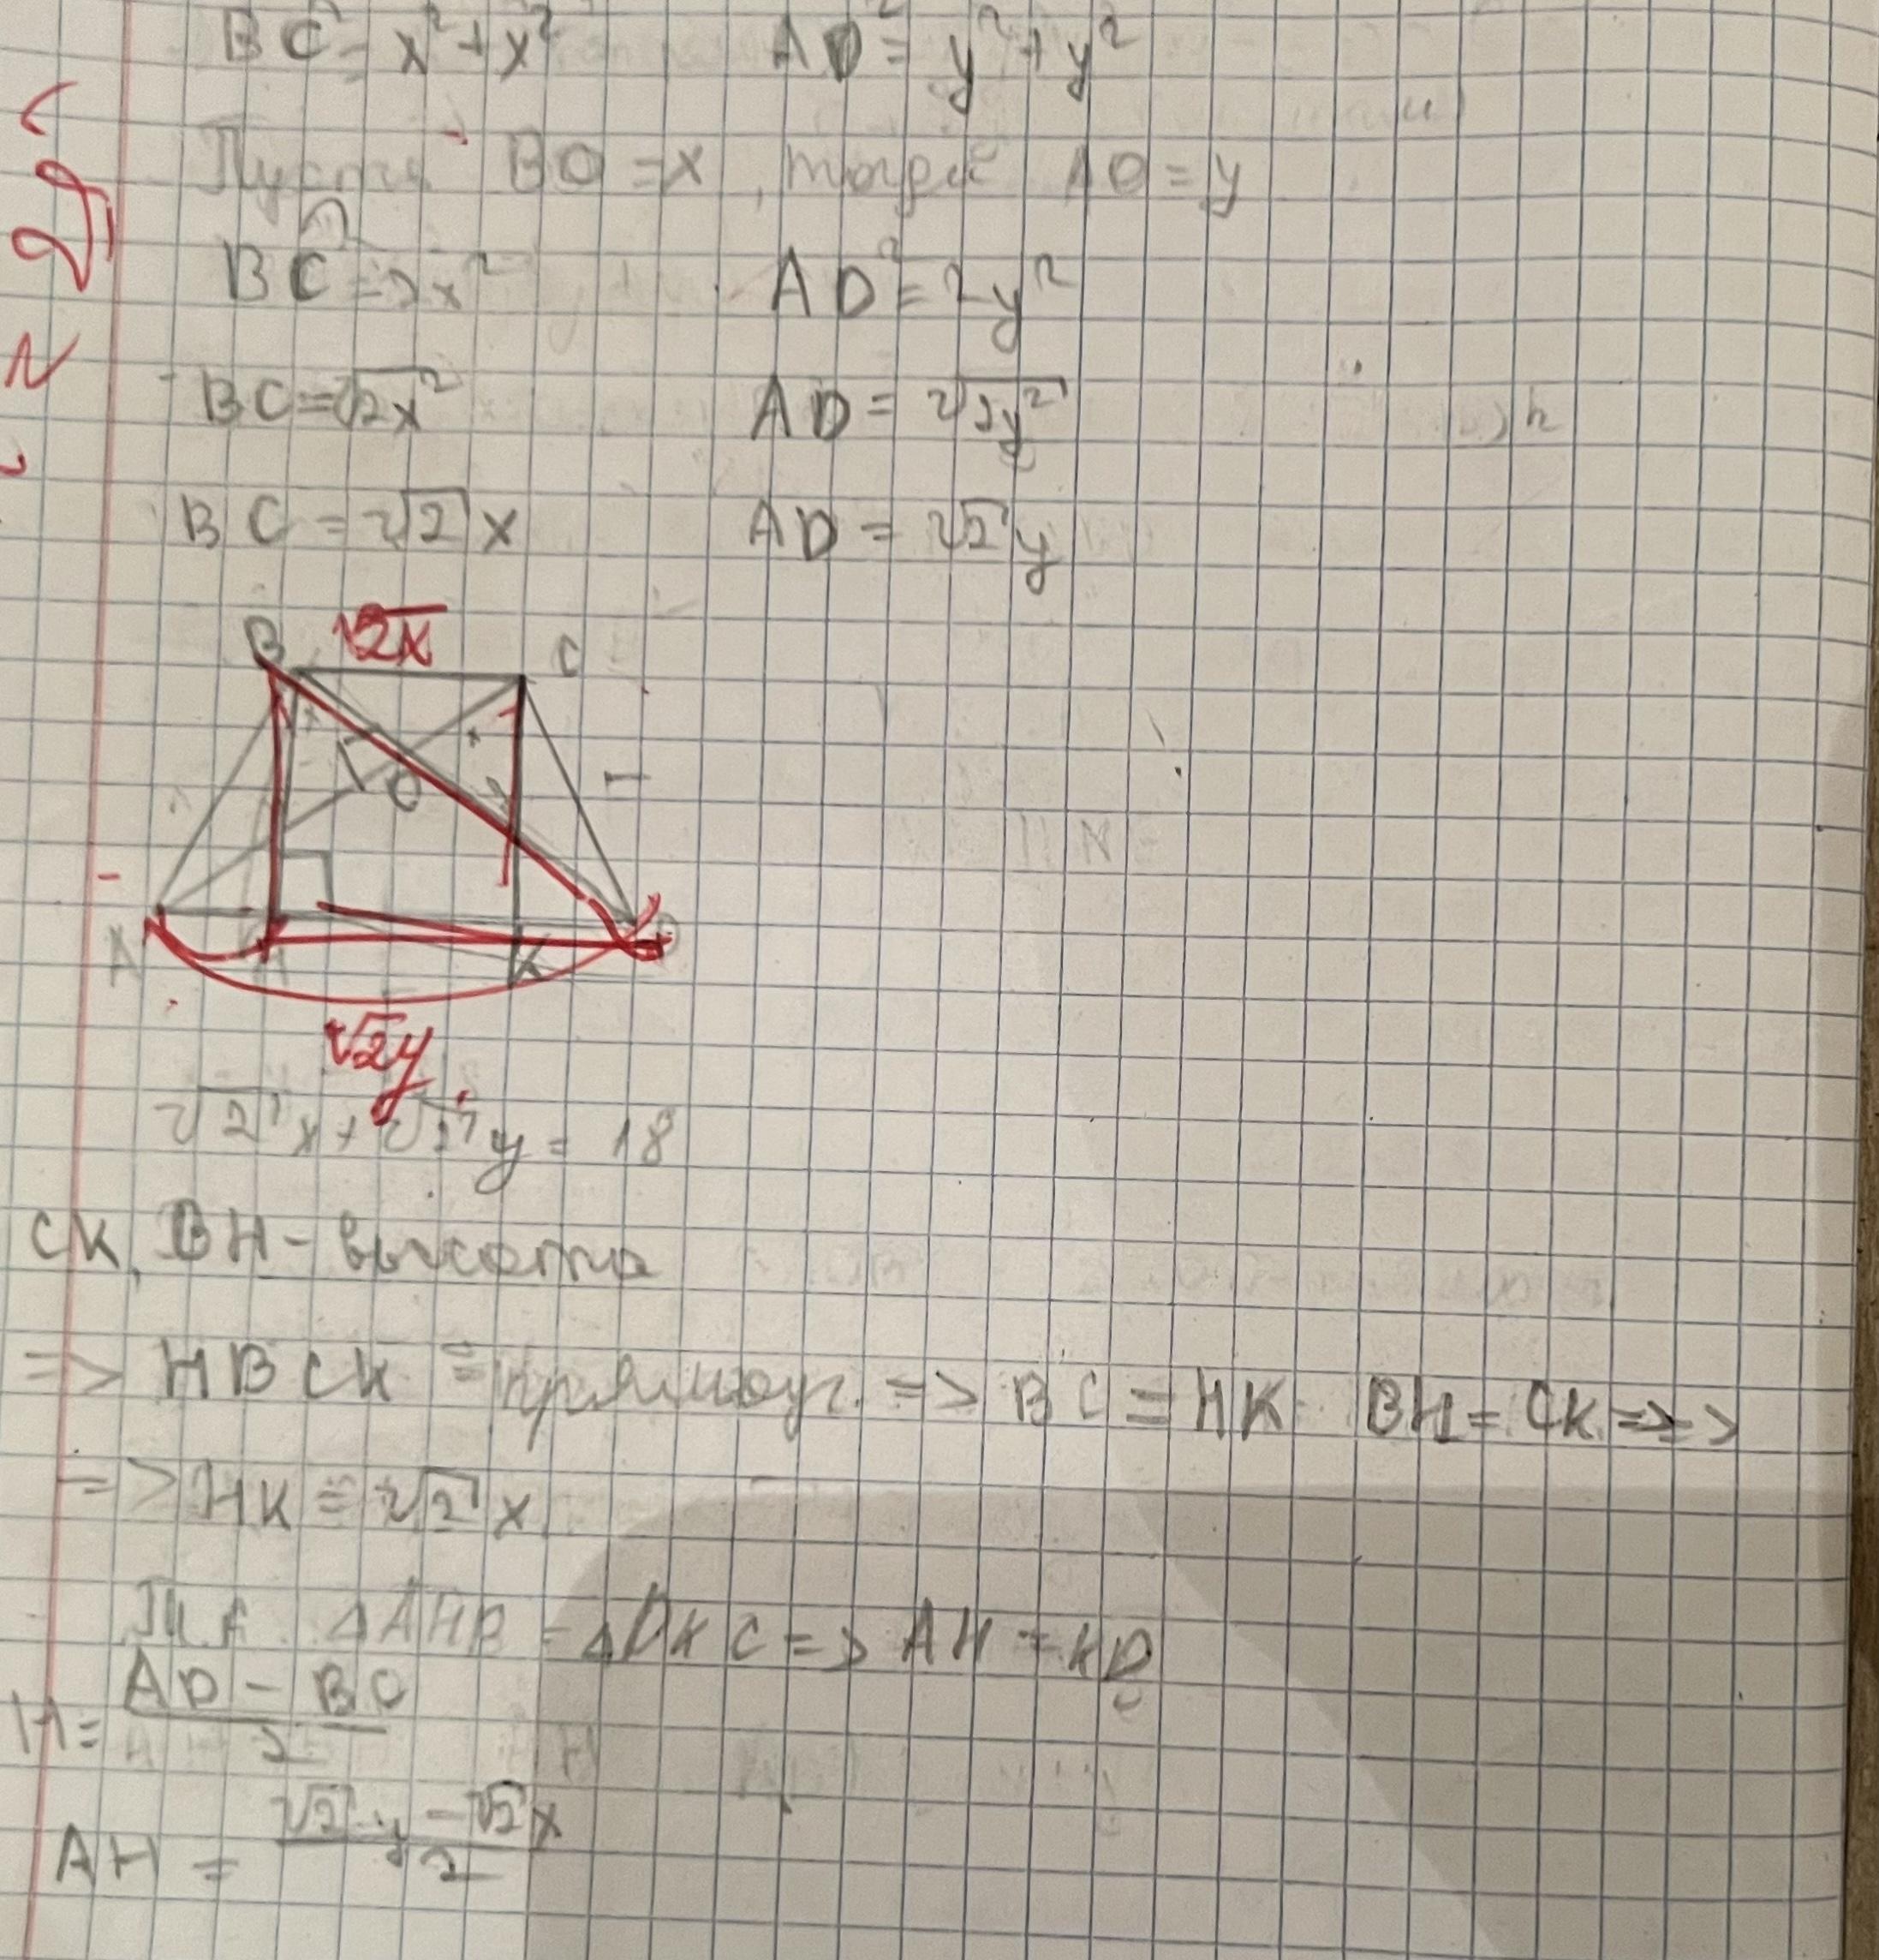 BC² = x² + x² AD² = y² + y²
Пусть BO = x, тогда AO = y
BC² = 2x² AD² = 2y²
BC = √2x² AD = √2y²
BC = √2 x AD = √2 y
B √2x C
O
A H K D
√2y
√2 x + √2 y = 18
CK, BH - высота
=> HBCK = прямоуг. => BC = HK BH = CK =>
=> HK = √2 x
Т.к. ΔAHB = ΔDKC => AH = KD
H = AD - BC / 2
AH = √2 y - √2 x / 2